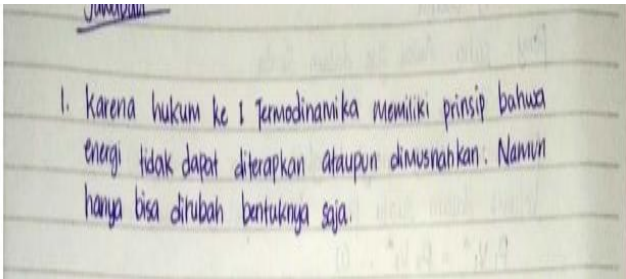 Jawaban
1. Karena hukum ke 1 Termodinamika memiliki prinsip bahwa
energi tidak dapat diterapkan ataupun dimusnahkan. Namun
hanya bisa dirubah bentuknya saja.